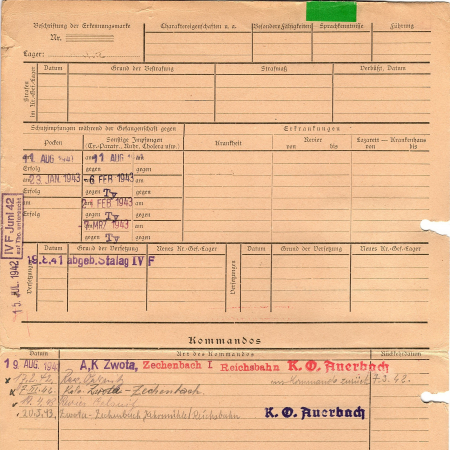 Beschriftung der Erkennungsmarke
Nr.
Lager:
Charaktereigenschaften u. a.
Besondere Fähigkeiten
Sprachkenntnisse
Führung
Strafen im Kr.-Gef.-Lager
Datum
Grund der Bestrafung
Strafmaß
Verbüßt, Datum
Schutzimpfungen während der Gefangenschaft gegen
Erkrankungen
Pocken
Sonstige Impfungen
(Ty.-Paratr., Ruhr, Cholera usw.)
Krankheit
Revier
von bis
Lazarett — Krankenhaus
von bis
11 AUG 1941
am 11 AUG 1941
Erfolg
gegen
23 JAN 1943
am -6 FEB 1943
Erfolg
gegen Ty
am
FEB 1943
Erfolg
gegen Ty
am
MRZ 1943
Erfolg
gegen Ty
IV F Juni 42
15. JUL 1942
Versetzungen
Datum
Grund der Versetzung
Neues Kr.-Gef.-Lager
Versetzungen
Datum
Grund der Versetzung
Neues Kr.-Gef.-Lager
19.8.41 abgeb. Stalag IV F
Kommandos
Datum
Art des Kommandos
Rückkehrdatum
19 AUG. 194
A,K Zwota, Zechenbach I Reichsbahn K. O. Auerbach
17.2.42,
zurück 7.3.42.
Kdo. Zwota-Zechenbach
20.3.43, Zwota-Zechenbach /Reichsbahn
K. O. Auerbach